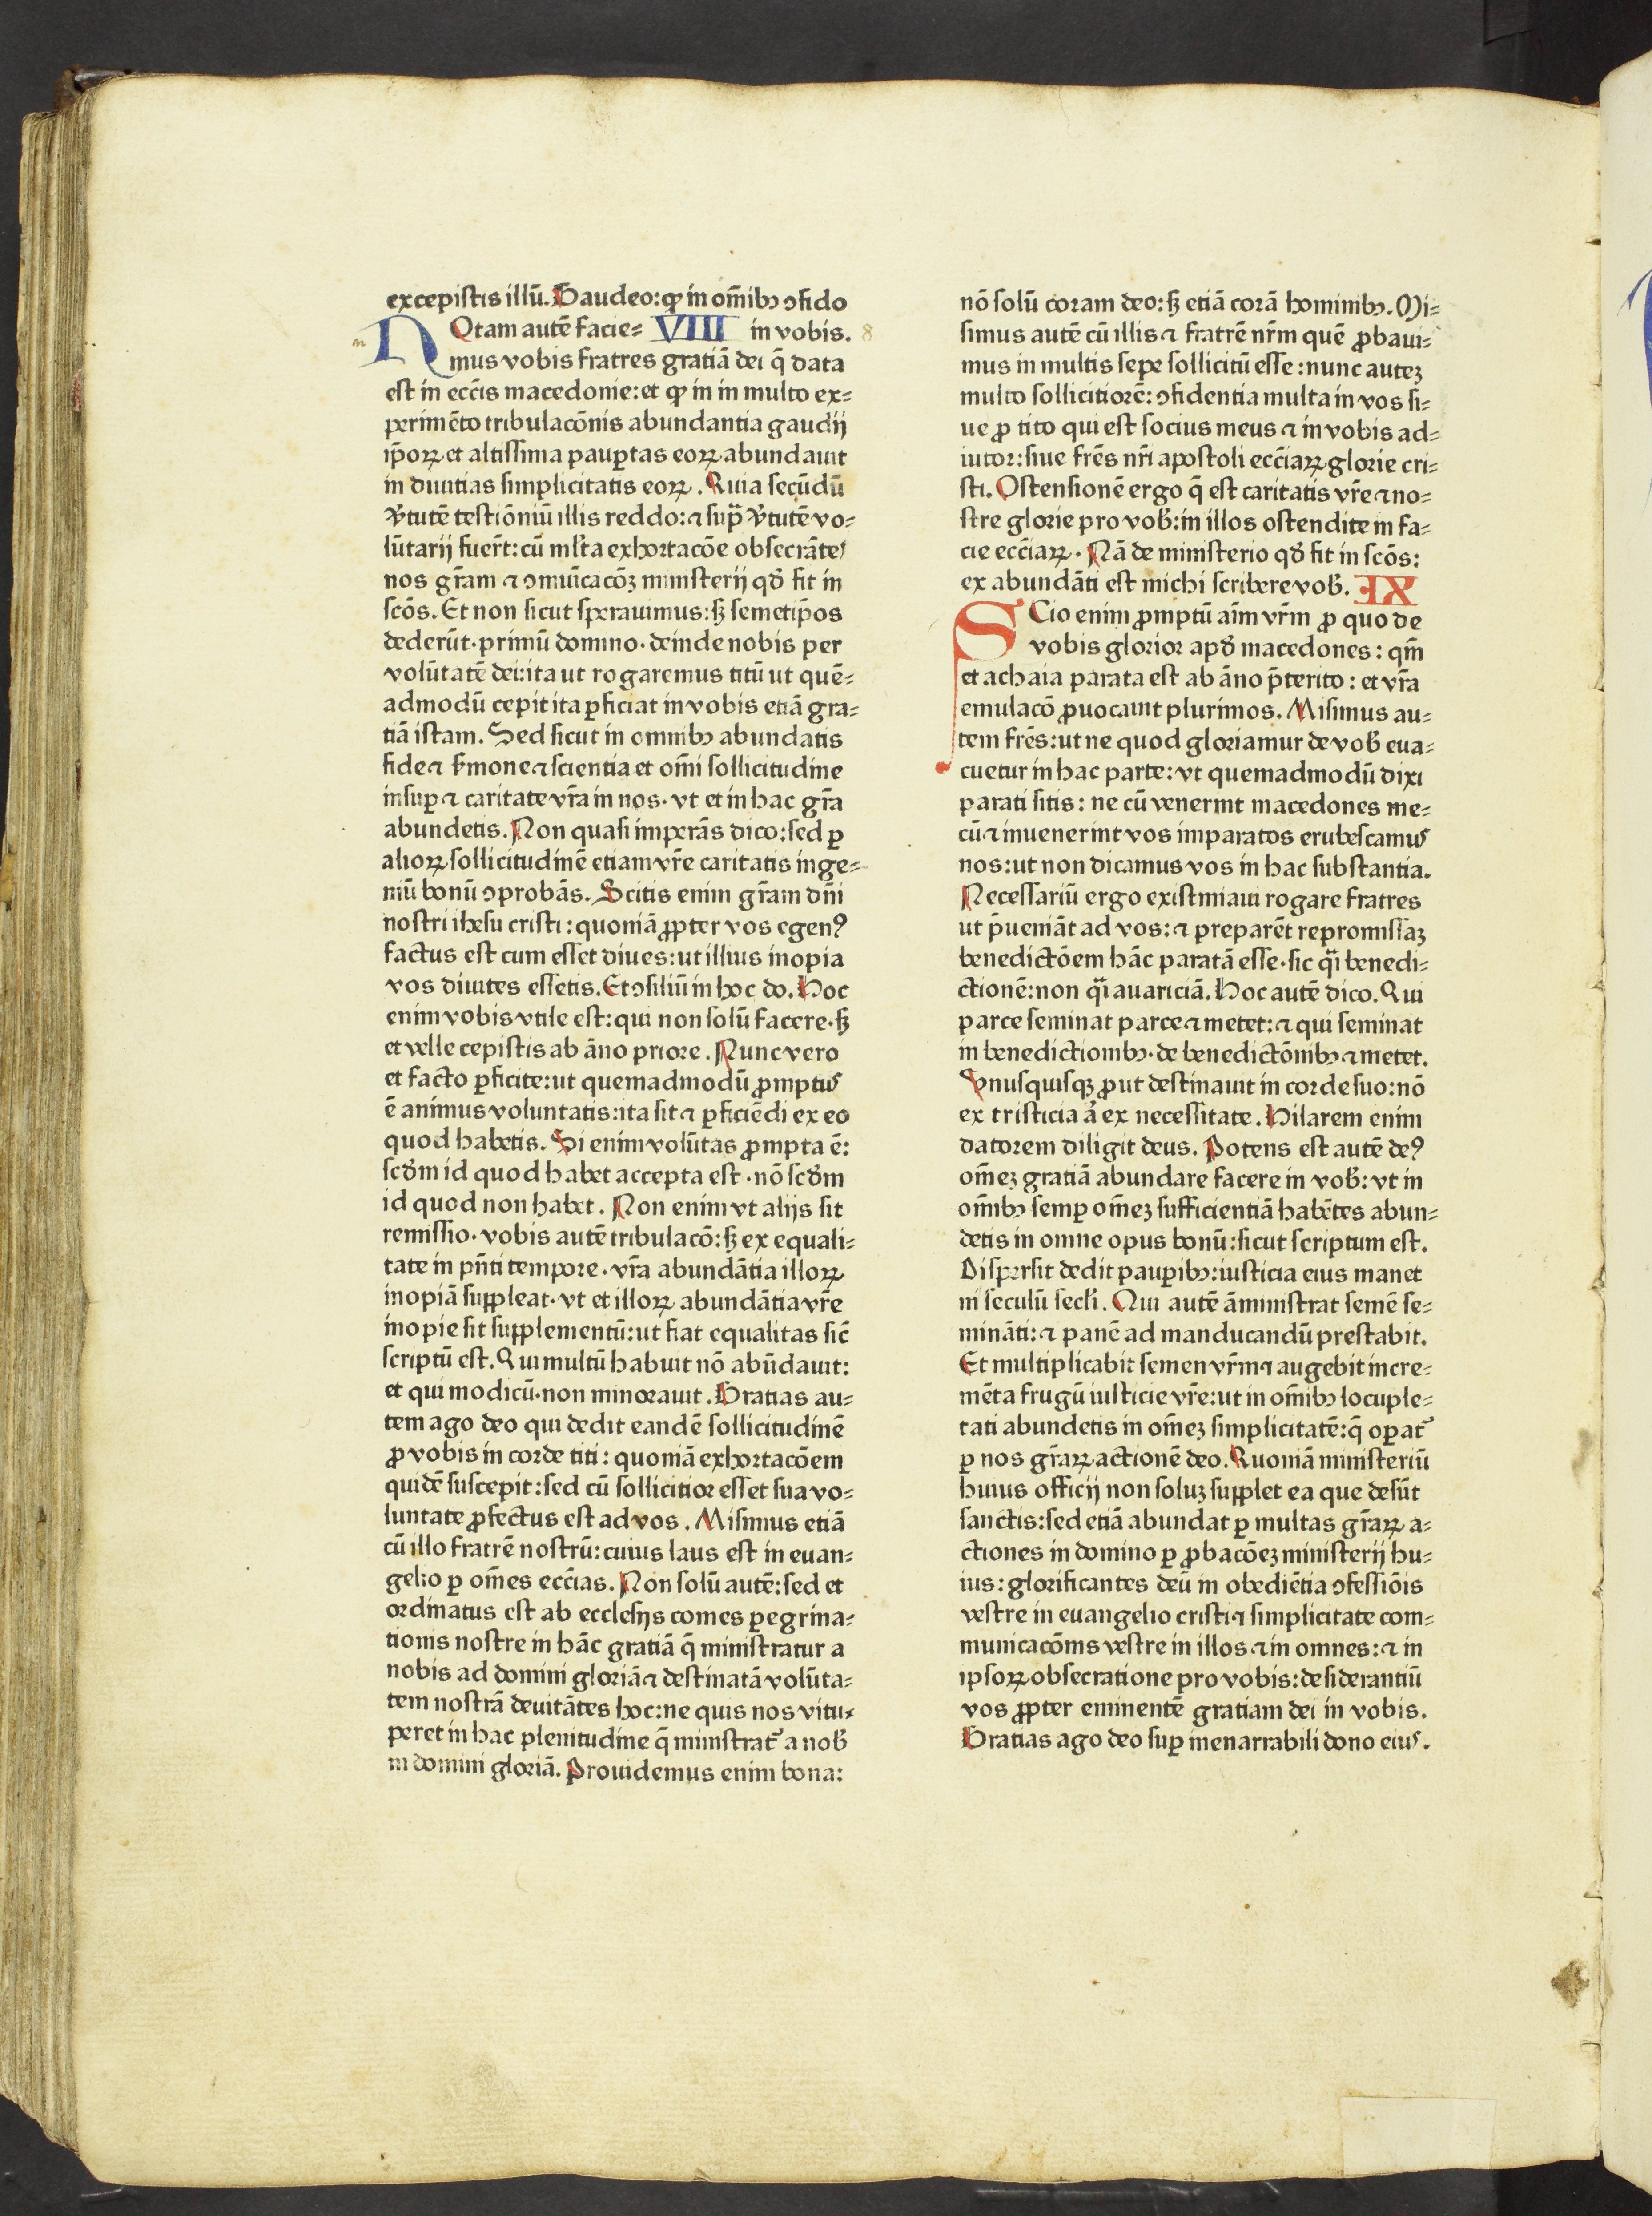 excepistis illū. Gaudeo: ꝙ in om̄ibꝫ ꝯfido
NOtam autē facie= VIIII in vobis. 8
mus vobis fratres gratiā dei q̄ data
est in ecc̄is macedonie: et ꝙ in in multo ex=
perimēto tribulacōnis abundantia gaudij
ip̄oꝝ et altissima pauꝑtas eoꝝ abundauit
in diuitias simplicitatis eoꝝ. Quia secūdū
v̓tutē testiōniū illis reddo: ⁊ sup̄ v̓tutē vo=
lūtarij fuer̄t: cū ml̓ta exhortacōe obsecrātes
nos gr̄am ⁊ ꝯmūicacōꝫ ministerij qđ fit in
scōs. Et non sicut sperauimus: sꝫ semetip̄os
dederūt· primū domino· deinde nobis per
volūtatē dei: ita ut rogaremus titū ut quē=
admodū cepit ita ꝑficiat in vobis etiā gra=
tiā istam. Sed sicut in omnibꝫ abundatis
fide ⁊ s̓mone ⁊ scientia et om̄i sollicitudine
insuꝑ ⁊ caritate vr̄a in nos· vt et in hac gr̄a
abundetis. Non quasi imperās dico: sed ꝑ
alioꝝ sollicitudinē etiam vr̄e caritatis inge=
niū bonū ꝯprobās. Scitis enim gr̄am dn̄i
nostri ihesu cristi: quoniā ꝓpter vos egenꝰ
factus est cum esset diues: ut illius inopia
vos diuites essetis. Et ꝯsiliū in hoc do. Hoc
enim vobis vtile est: qui non solū facere· sꝫ
et velle cepistis ab āno priore. Nunc vero
et facto ꝑficite: ut quemadmodū ꝓmptus
ē animus voluntatis: ita sit ⁊ ꝑficiēdi ex eo
quod habetis. Si enim volūtas ꝓmpta ē:
scđm id quod habet accepta est· nō scđm
id quod non habet. Non enim vt alijs sit
remissio· vobis autē tribulacō: sꝫ ex equali=
tate in pn̄ti tempore· vr̄a abundātia illoꝝ
inopiā suppleat· vt et illoꝝ abundātia vr̄e
inopie sit supplementū: ut fiat equalitas sic̄
scriptū est. Qui multū habuit nō abūdauit:
et qui modicū· non minorauit. Gratias au=
tem ago deo qui dedit eandē sollicitudinē
ꝓ vobis in corde titi: quoniā exhortacōem
quidē suscepit: sed cū sollicitior esset sua vo=
luntate ꝓfectus est ad vos. Misimus etiā
cū illo fratrē nostrū: cuius laus est in euan=
gelio ꝑ om̄es ecc̄ias. Non solū autē: sed et
ordinatus est ab ecclesijs comes ꝑegrina=
tionis nostre in hāc gratiā q̄ ministratur a
nobis ad domini gloriā ⁊ destinatā volūta=
tem nostrā deuitātes hoc: ne quis nos vitu=
peret in hac plenitudine q̄ ministrat᷑ a nob̓
in domini gloriā. Prouidemus enim bona:
nō solū coram deo: sꝫ etiā corā hominibꝫ. Mi=
simus autē cū illis ⁊ fratrē nr̄m quē ꝓbaui=
mus in multis sepe sollicitū esse: nunc auteꝫ
multo sollicitiorē: ꝯfidentia multa in vos si=
ue ꝓ tito qui est socius meus ⁊ in vobis ad=
iutor: siue fr̄es nr̄i apostoli ecc̄iaꝝ glorie cri=
sti. Ostensionē ergo q̄ est caritatis vr̄e ⁊ no=
stre glorie pro vob̓: in illos ostendite in fa=
cie ecc̄iaꝝ. Nā de ministerio qđ fit in scōs:
ex abundāti est michi scribere vob̓. IX
SCio enim ꝓmptū aīm vr̄m ꝓ quo de
vobis glorior apđ macedones: qm̄
et achaia parata est ab āno p̄terito: et vr̄a
emulacō ꝓuocauit plurimos. Misimus au=
tem fr̄es: ut ne quod gloriamur de vob̓ eua=
cuetur in hac parte: vt quemadmodū dixi
parati sitis: ne cū venerint macedones me=
cū ⁊ inuenerint vos imparatos erubescamus
nos: ut non dicamus vos in hac substantia.
Necessariū ergo existimaui rogare fratres
ut p̄ueniāt ad vos: ⁊ preparēt repromissaꝫ
benedictōem hāc paratā esse· sic q̄i benedi=
ctionē: non q̄i auariciā. Hoc autē dico. Qui
parce seminat parce ⁊ metet: ⁊ qui seminat
in benedictionibꝫ· de benedictōnibꝫ ⁊ metet.
Vnusquisqꝫ ꝓut destinauit in corde suo: nō
ex tristicia a̓ ex necessitate. Hilarem enim
datorem diligit deus. Potens est autē deꝰ
om̄eꝫ gratiā abundare facere in vob̓: vt in
om̄ibꝫ semꝑ om̄eꝫ sufficientiā habētes abun=
detis in omne opus bonū: sicut scriptum est.
Dispersit dedit pauꝑibꝫ: iusticia eius manet
in seculū secl̓i. Qui autē āministrat semē se=
mināti: ⁊ panē ad manducandū prestabit.
Et multiplicabit semen vr̄m ⁊ augebit incre=
mēta frugū iusticie vr̄e: ut in om̄ibꝫ locuple=
tati abundetis in om̄eꝫ simplicitatē: q̄ oꝑat᷑
ꝑ nos gr̄aꝝ actionē deo. Quoniā ministeriū
huius officij non soluꝫ supplet ea que desūt
sanctis: sed etiā abundat ꝑ multas gr̄aꝝ a=
ctiones in domino ꝑ ꝓbacōeꝫ ministerij hu=
ius: glorificantes deū in obediētia ꝯfessiōis
vestre in euangelio cristi ⁊ simplicitate com=
municacōnis vestre in illos ⁊ in omnes: ⁊ in
ipsoꝝ obsecratione pro vobis: desiderantiū
vos ꝓpter eminentē gratiam dei in vobis.
Gratias ago deo suꝑ inenarrabili dono eius.